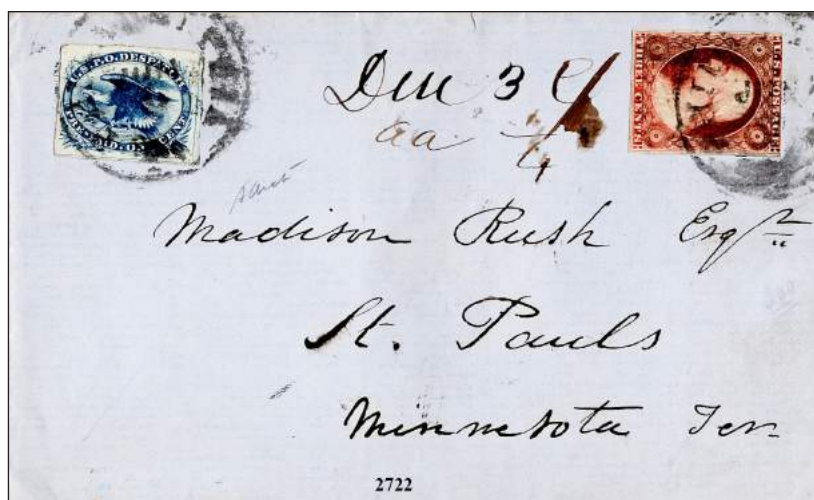 U.S.P.O. DESPATCH
PRE-PAID. ONE CENT.
U.S. POSTAGE
THREE CENTS
Due 3
Madison Rush Esqr
St. Pauls
Minnesota Ter.
2722